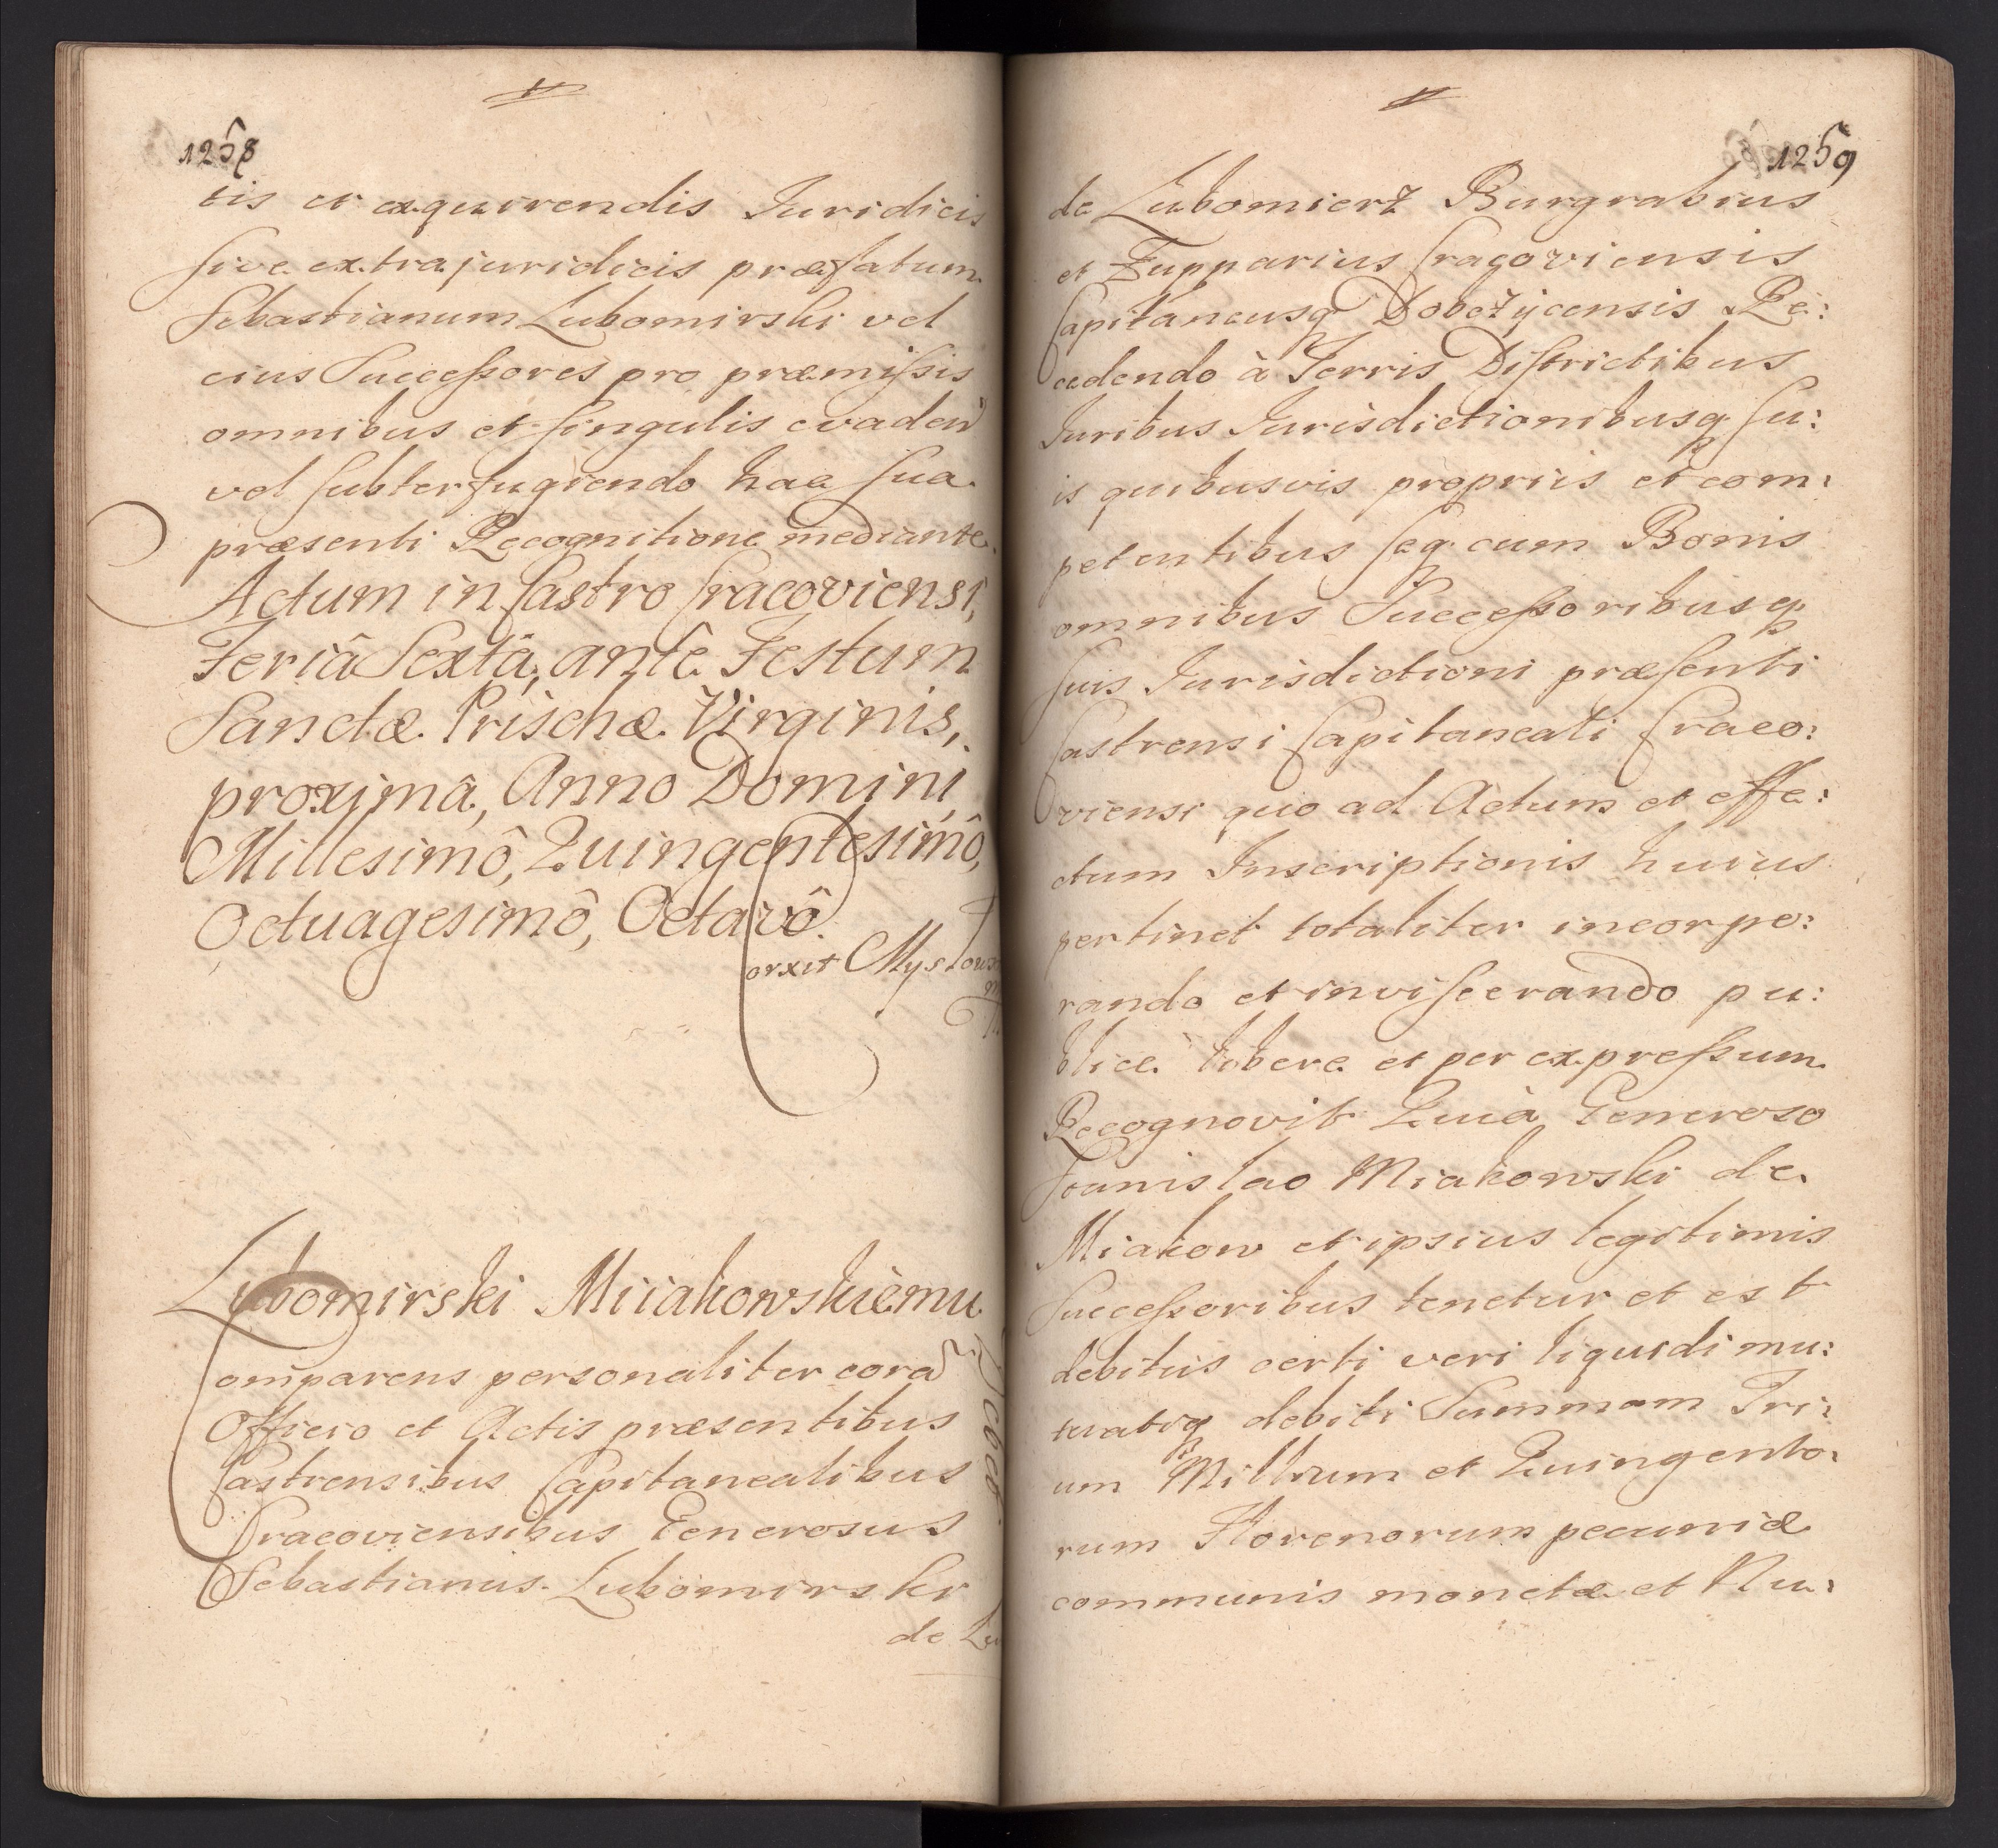 1258
tis et exquirendis Iuridicis
sive extrajuridicis præfatum
Sebastianum Lubomirski vel
eius Successores pro præmissis
omnibus et singulis evaden̄
vel subterfugiendo hac sua
præsenti Recognitione mediante.
Actum in Castro Cracoviensi,
Feriâ Sextâ, antê Festum
Sanctæ Prischæ Virginis,
proximâ, Anno Domini
Millesimô, Quingentesimô,
Octuagesimô, Octavô.
Lubomirski Miiakowskiemu
Comparens personaliter corā
Officio et Actis præsentibus
Castrensibus Capitanealibus
Cracoviensibus Generosus
Sebastianus Lubomirski
de Lu
1259
de Lubomierz Burgrabius
et Zupparius Cracoviensis
Capitaneusq Dobczycensis Re:
cedendo à Terris Districtibus
Iuribus Iurisdictionibusq su:
is quibusvis propriis et com:
petentibus seq cum Bonis
omnibus Successoribusq
suis Iurisdictioni præsenti
Castrensi Capitaneali Craco:
viensi quo ad Actum et effe:
ctum Inscriptionis huius
pertinet totaliter incorpo:
rando et inviscerando pu:
blice libere et per expressum
Recognovit Quià Generoso
Stanislao Miakowski de
Miakow et ipsius legitimis
Successoribus tenetur et est
debitus certi veri liquidi mu:
tuatiq debiti Summam Tri:
um Millium et Quingento:
rum Florenorum pecuniæ
communis monetæ et Nu: